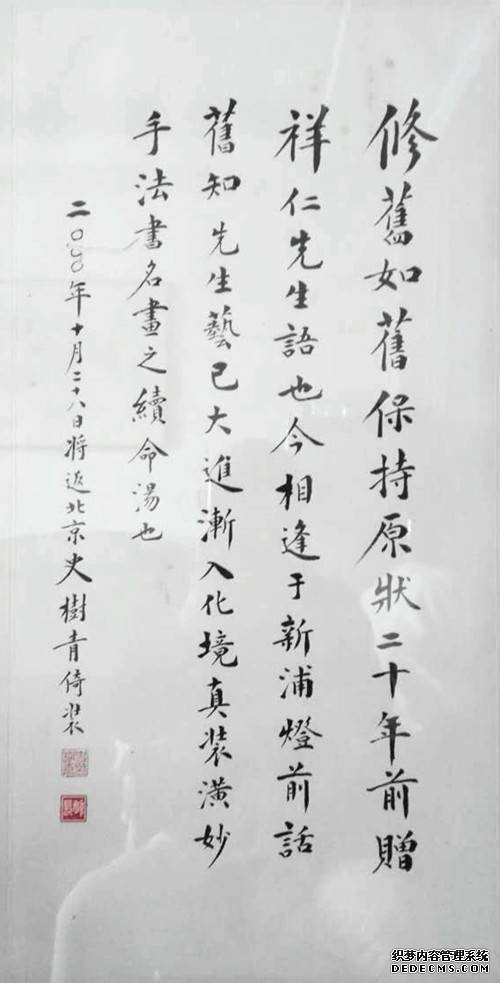 修舊如舊保持原狀二十年前贈
祥仁先生語也今相逢于新浦燈前話
舊知先生藝已大進漸入化境真装潢妙
手法書名畫之續命湯也
二〇〇〇年十月二十八日将返北京史樹青倚装
织梦内容管理系统
DEDECMS.COM